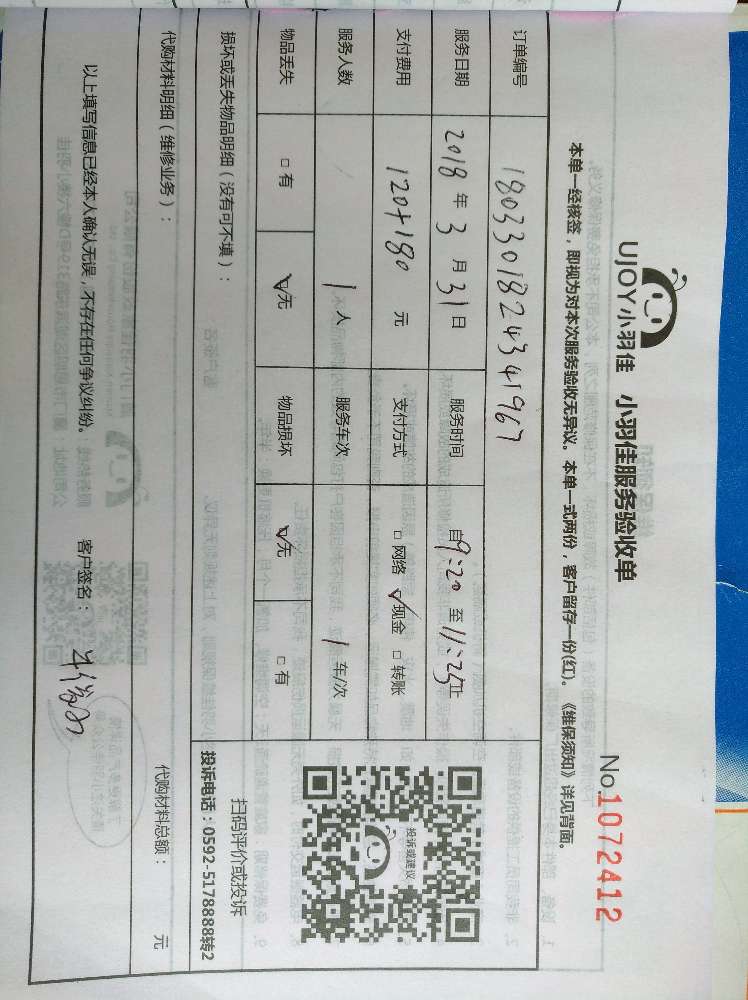 UJOY小羽佳 小羽佳服务验收单
No.1072412
本单一经核签，即视为对本次服务验收无异议。本单一式两份，客户留存一份(红)。《维保须知》详见背面。
订单编号 1803301824341967
服务日期 2018 年 3 月 31 日 服务时间 自9:20 至 11:25止
支付费用 120+180 元 支付方式 □ 网络 ☑ 现金 □ 转账
服务人数 1 人 服务车次 1 车/次
物品丢失 □ 有 ☑无 物品损坏 ☑无 □ 有
投诉或建议
损坏或丢失物品明细（没有可不填）：
扫码评价或投诉
投诉电话：0592-5178888转2
代购材料明细（维修业务）： 代购材料总额： 元
以上填写信息已经本人确认无误，不存在任何争议纠纷。 客户签名：